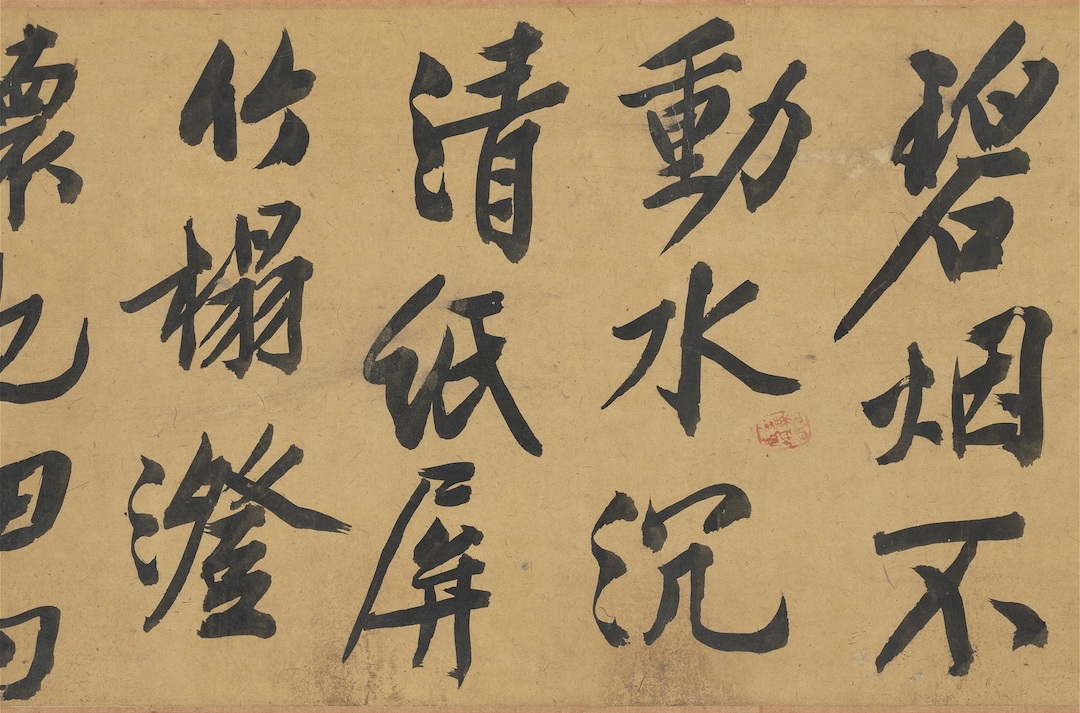 碧烟不
動水沉
清紙屏
竹榻澄
懷